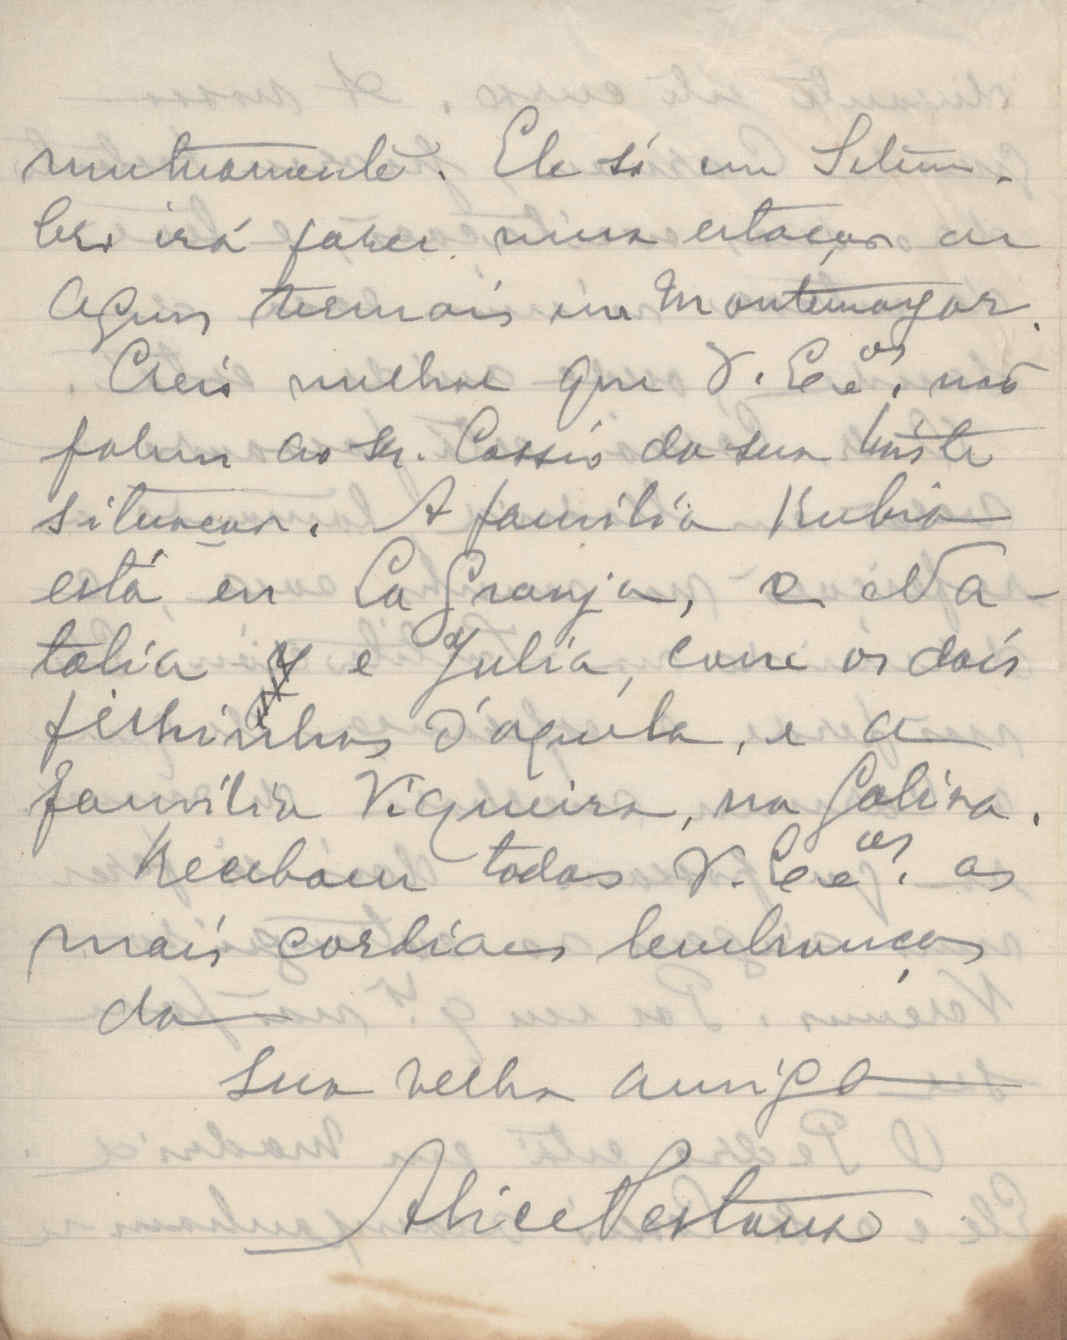 mutuamente. Ele só em Setem-
bro irá fazer uma estação de
aguas termais em Montemayor.
Creio melhor que V. Ex.as não
falem ao Sr. Cossio da sua triste
situação. A familia Rubio
está en La Granja, e Na-
talia e Julia, com os dois
filhinhos d'aquela, e a
familia Viqueira, na Galiza.
Recebam todas V. Ex.as as
mais cordiaes lembranças
da
sua velha amiga
Alice Pestana